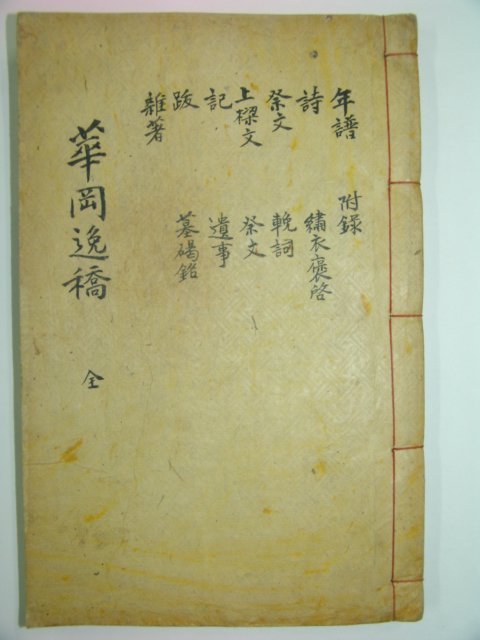 年譜
詩
祭文
上樑文
記
跋
雜著
附錄
繡衣褒啓
輓詞
祭文
遺事
墓碣銘
華岡逸稿
全